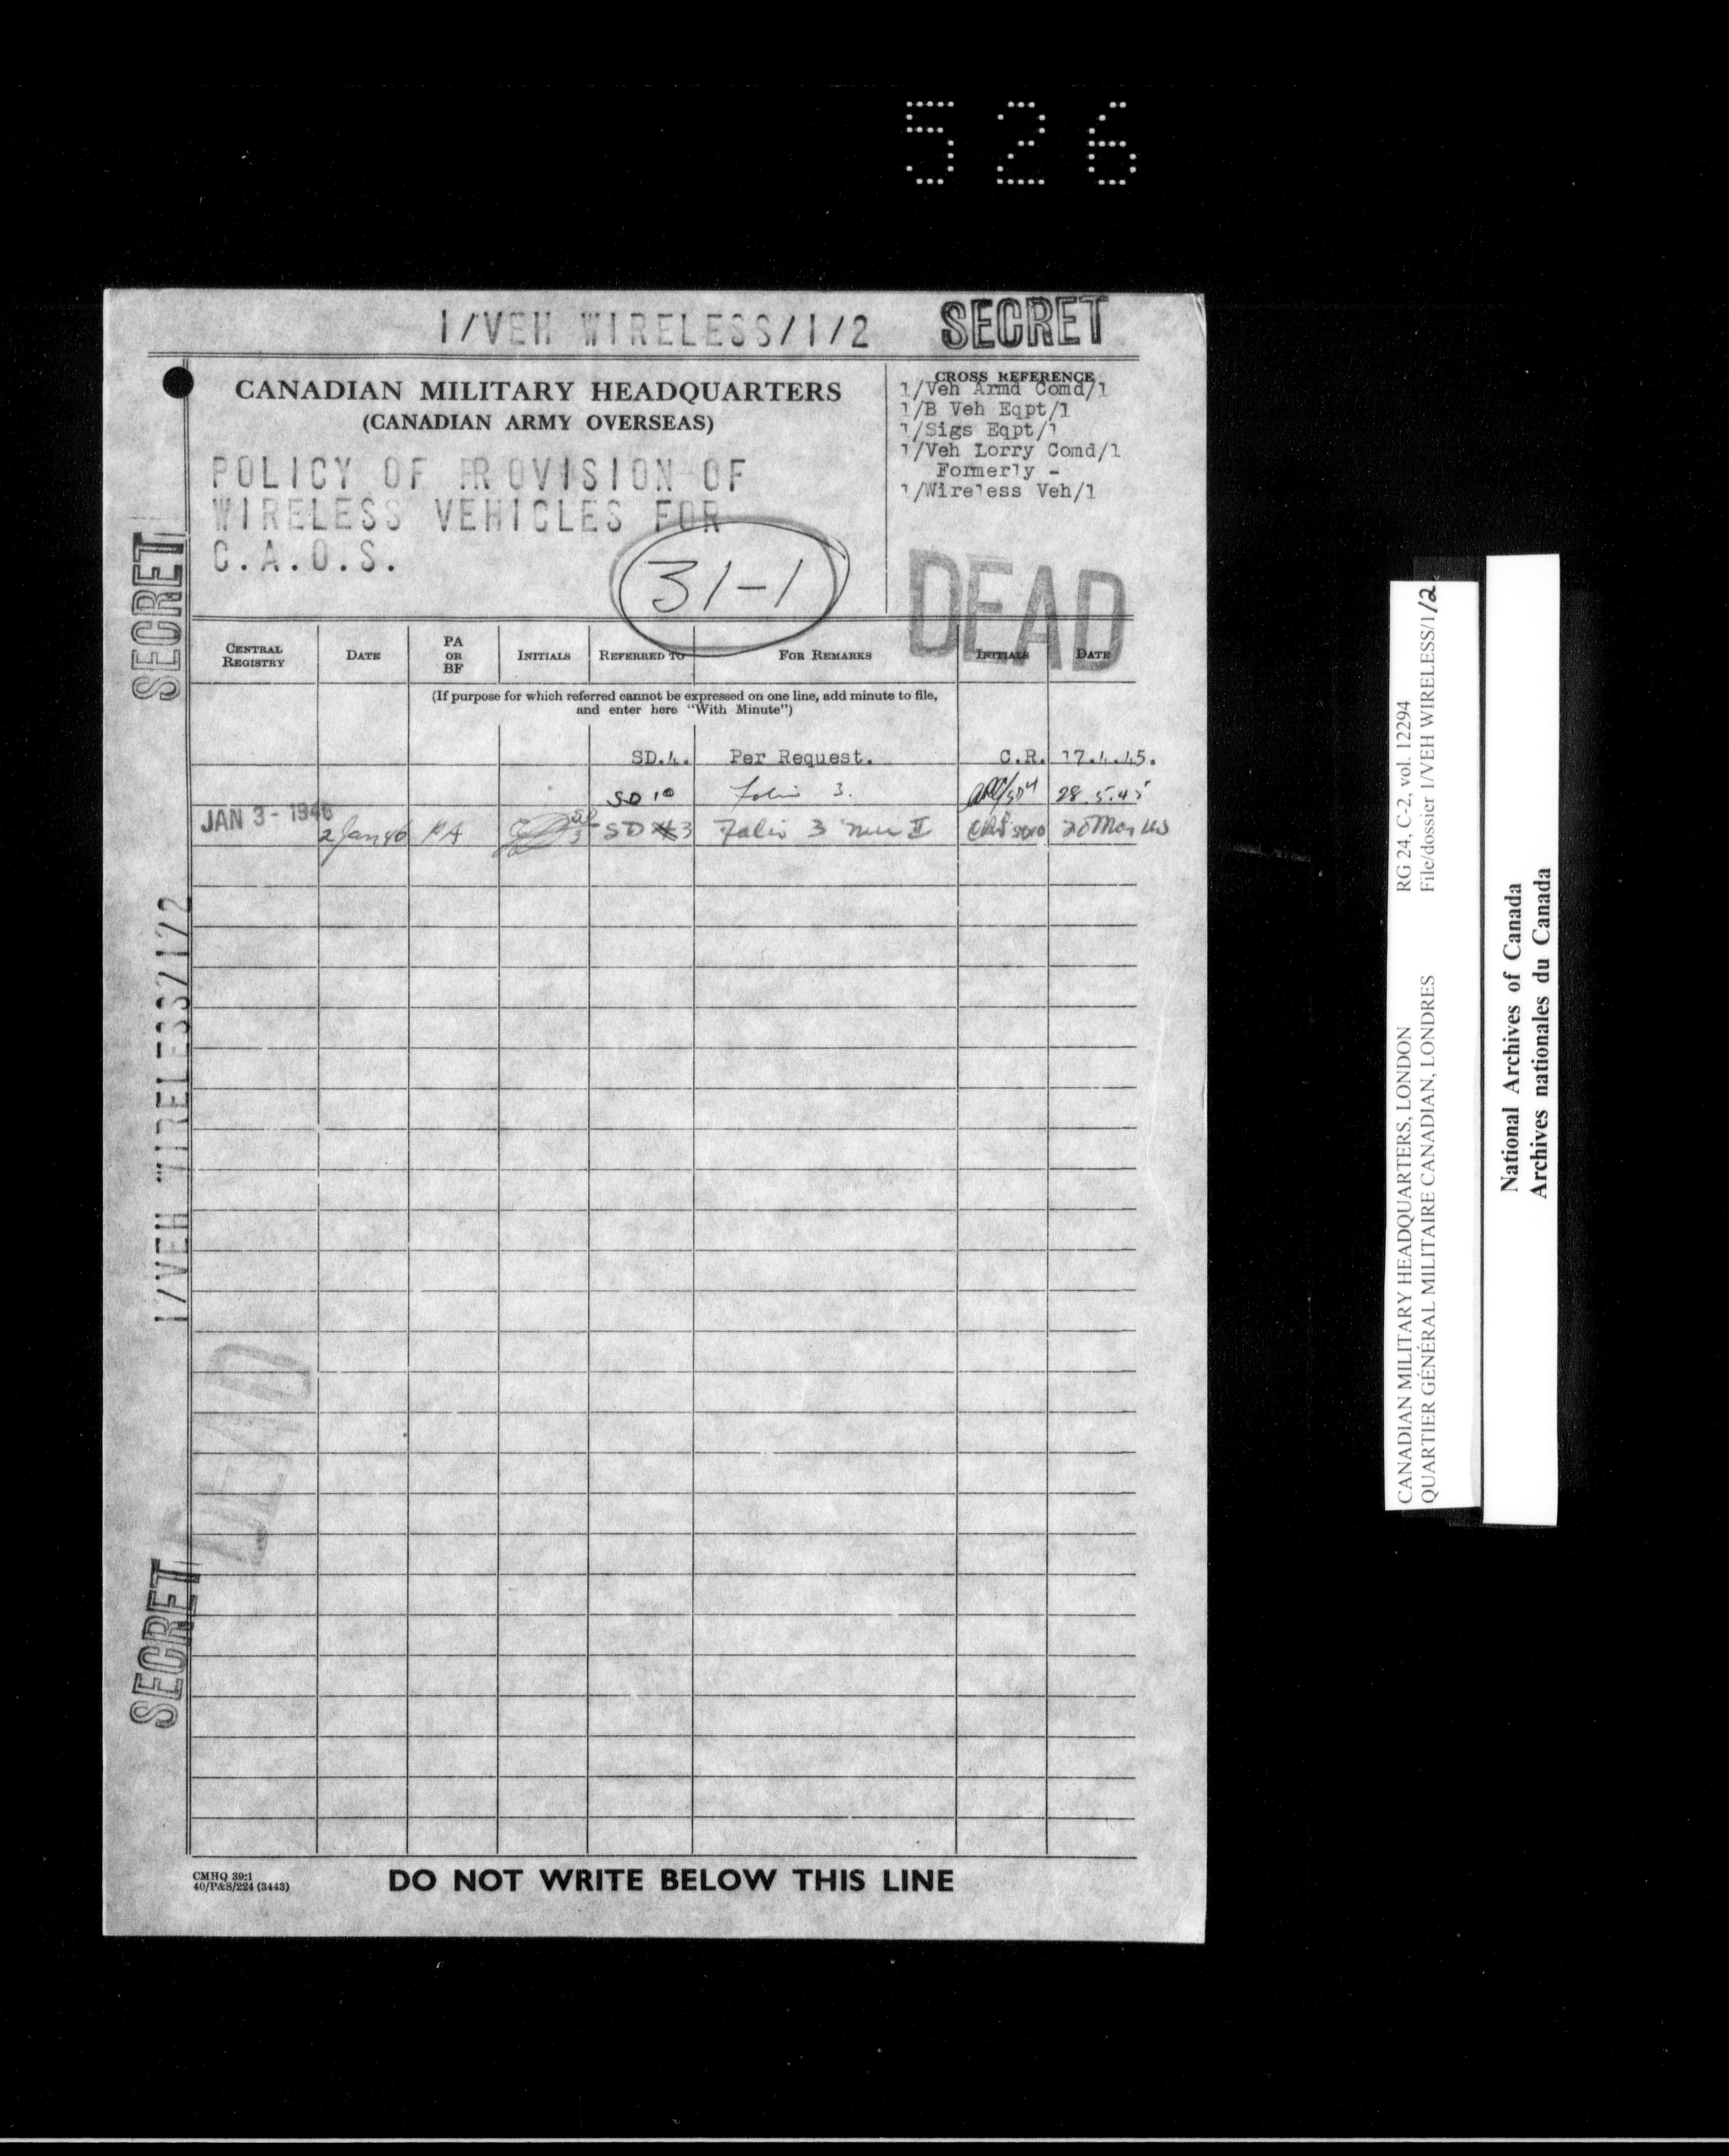 526
1/VEH WIRELESS/1/2
SECRET
CANADIAN MILITARY HEADQUARTERS
(CANADIAN ARMY OVERSEAS)
POLICY OF PROVISION OF
WIRELESS VEHICLES FOR
C.A.O.S.
31-1
CROSS REFERENCE
1/Veh Armd Comd/1
1/B Veh Eqpt/1
1/Sigs Eqpt/1
1/Veh Lorry Comd/1
Formerly -
1/Wireless Veh/1
DEAD
CENTRAL REGISTRY DATE PA OR BF INITIALS REFERRED TO FOR REMARKS INITIALS DATE
(If purpose for which referred cannot be expressed on one line, add minute to file,
and enter here "With Minute")
SD.4. Per Request. C.R. 17.4.45.
SD 10 Folio 3. 28.5.45
JAN 3 - 1946 2 Jan 46 PA SD 3 Folio 3 Min II
SECRET
1/VEH WIRELESS/1/2
DEAD
SECRET
CMHQ 39:1
40/P&S/224 (3443)
DO NOT WRITE BELOW THIS LINE
CANADIAN MILITARY HEADQUARTERS, LONDON RG 24, C-2, vol. 12294
QUARTIER GÉNÉRAL MILITAIRE CANADIAN, LONDRES File/dossier 1/VEH WIRELESS/1/2
National Archives of Canada
Archives nationales du Canada